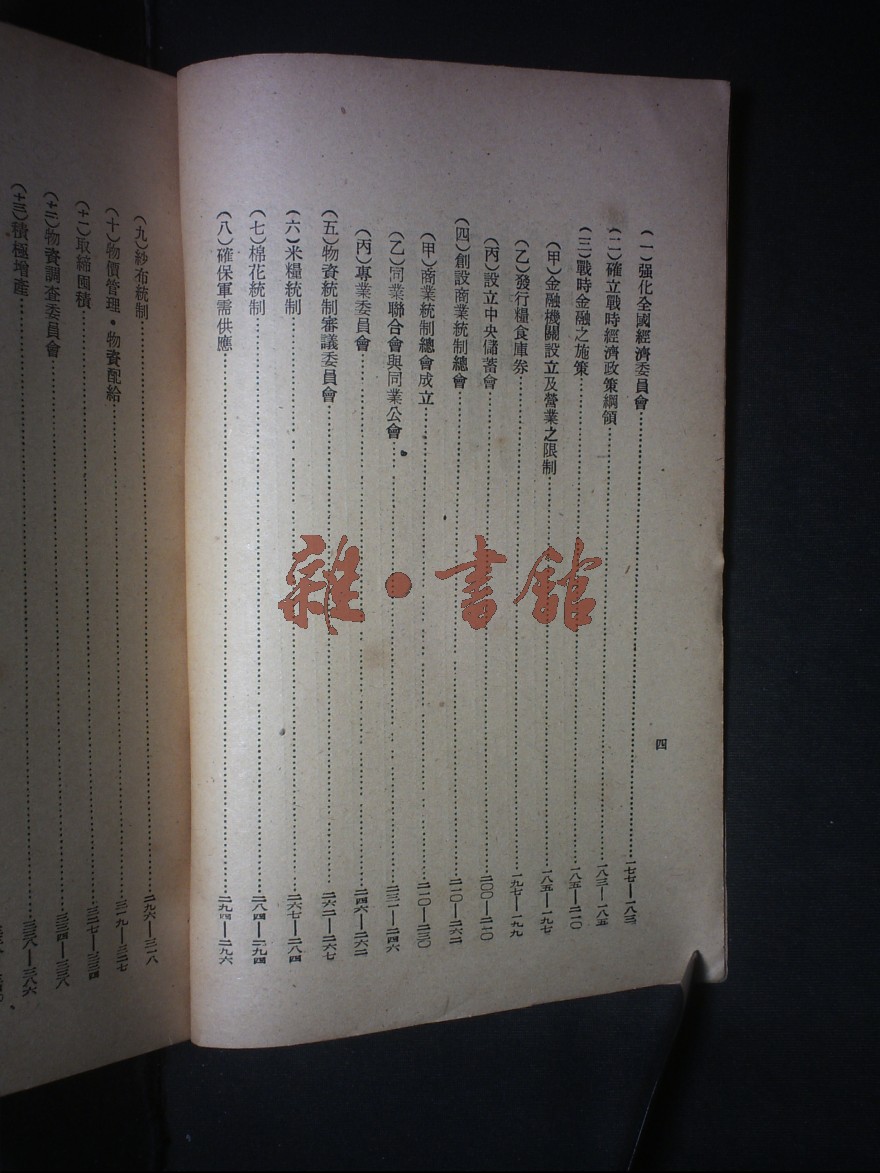 四
（一）强化全國經濟委員會……一七七—一八三
（二）確立戰時經濟政策綱領……一八三—一八五
（三）戰時金融之施策……一八五—二一〇
（甲）金融機關設立及營業之限制……一八五—一九七
（乙）發行糧食庫券……一九七—一九九
（丙）設立中央儲蓄會……二〇〇—二一〇
（四）創設商業統制總會……二一〇—二六二
（甲）商業統制總會成立……二一〇—二三〇
（乙）同業聯合會與同業公會……二三一—二四六
（丙）專業委員會……二四六—二六二
（五）物資統制審議委員會……二六二—二六七
（六）米糧統制……二六七—二八四
（七）棉花統制……二八四—二九四
（八）確保軍需供應……二九四—二九六
（九）紗布統制……二九六—三一八
（十）物價管理・物資配給……三一九—三二七
（十一）取締囤積……三二七—三三四
（十二）物資調查委員會……三三四—三三八
（十三）積極增產……三三八—三八六
雜・書館